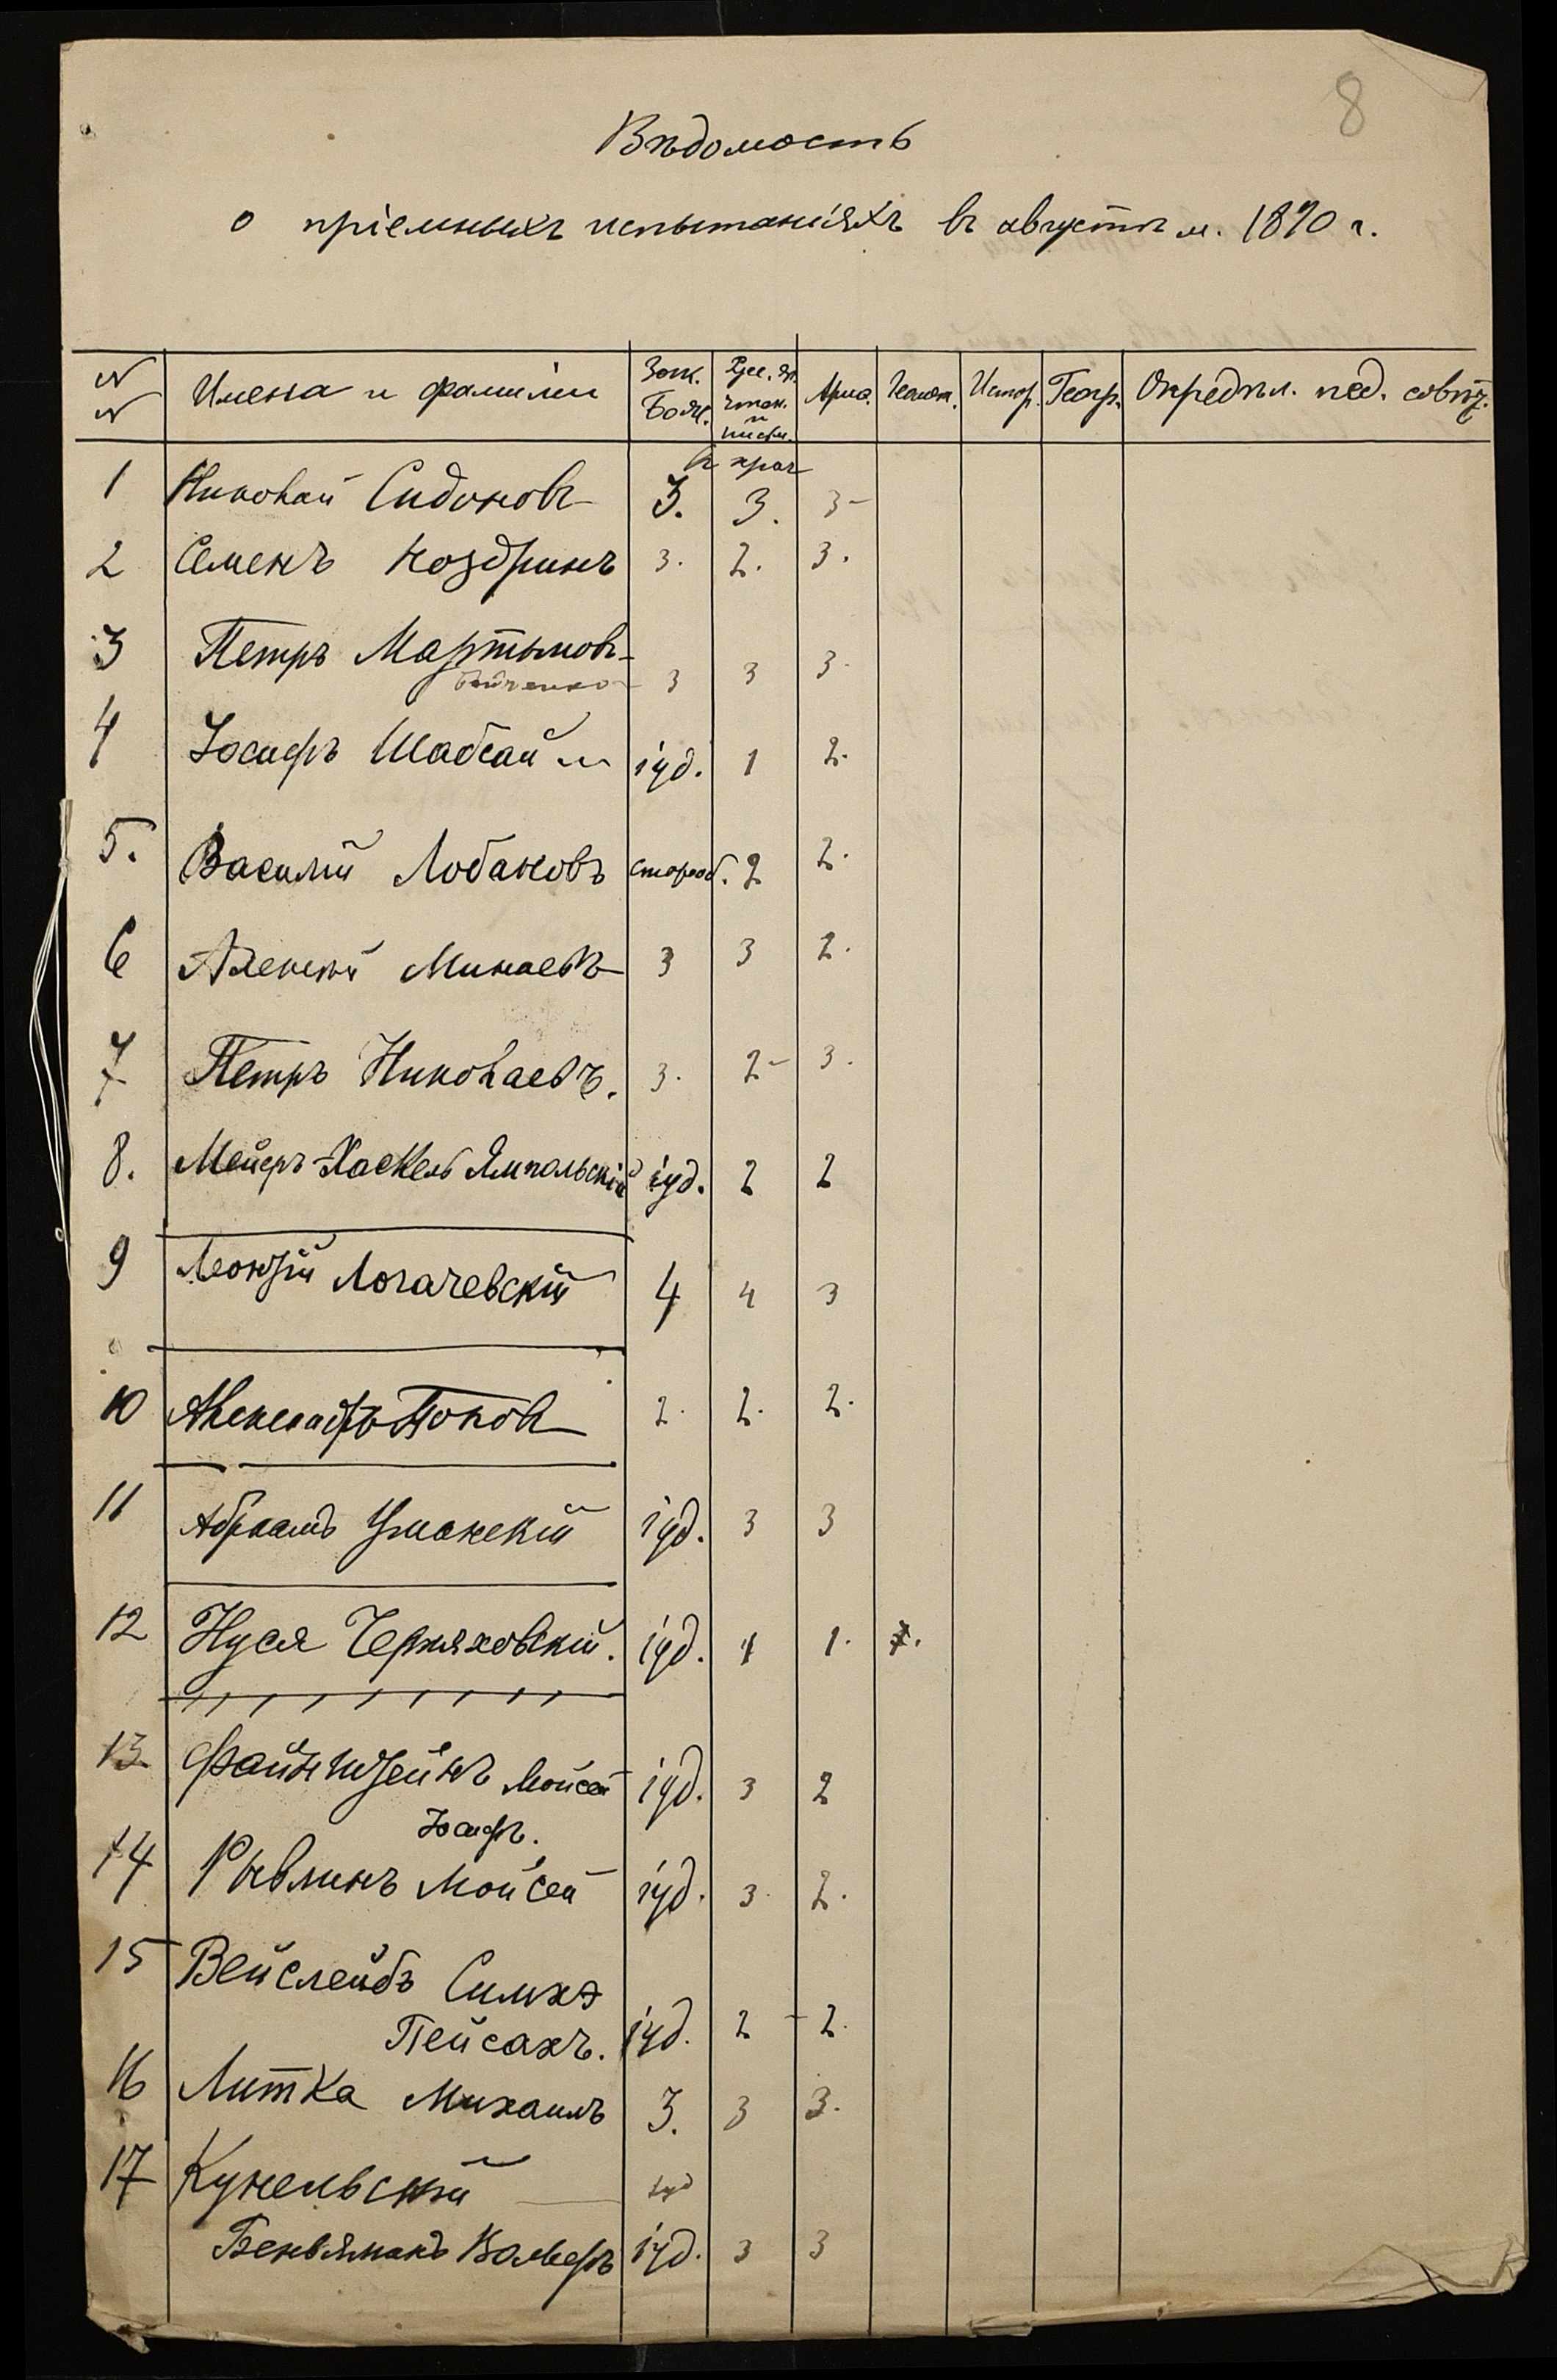 8
Вѣдомость
о пріемныхъ испытаніяхъ въ августѣ м. 1890 г.
№ № Имена и фамиліи Зак. Бож. Рус. яз. читан. и письм. Арие. Геомет. Истор. Геогр. Опредѣл. пед. совѣт.
1 Николай Сидоновъ 3. 3. 3-
2 Семенъ Ноздринъ 3. 2. 3.
3 Петръ Мартыновъ
3 3 3.
4 Іосифъ Шабсай іуд. 1 2.
5. Василій Лобановъ старооб. 2 2.
6 Алексѣй Минаевъ 3 3 2.
7 Петръ Николаевъ. 3. 2- 3.
8. Мейеръ-Хаскель Ямпольскій іуд. 2 2
9 Леонтій Логачевскій 4 4 3
10 Александръ Поповъ 2. 2. 2.
11 Абрамъ Уманскій іуд. 3 3
12 Нуся Черняховскій. іуд. 1 1.
13 Файнштейнъ Мойсей іуд. 3 2
Іосифъ.
14 Рывлинъ Мойсей іуд. 3. 2.
15 Вейслейбъ Симхэ
Пейсахъ. іуд. 2 - 2.
16 Литка Михаилъ 3. 3 3.
17 Кунельскій іуд
Беньяминъ Вольфъ іуд. 3 3